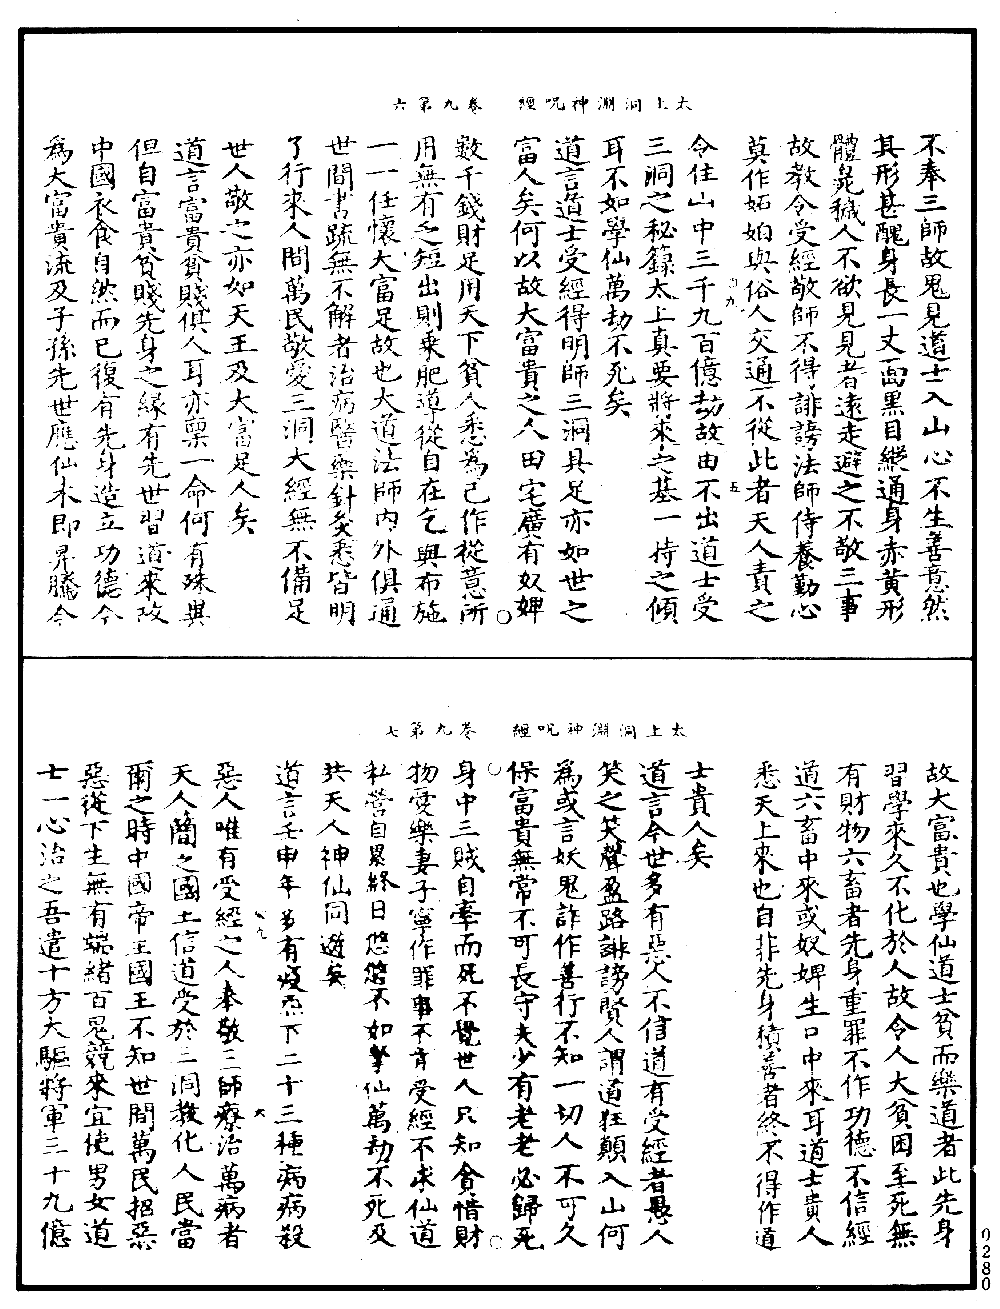 太上洞淵神呪經　卷九第六
不奉三師故鬼見道士入山心不生善意然
其形甚醜身長一丈面黑目縱通身赤黃形
體臭穢人不欲見見者遠走避之不敬三事
故教令受經敬師不得誹謗法師侍養勤心
莫作妬姤與俗人交通不從此者天人責之
令住山中三千九百億劫故由不出道士受
三洞之秘籙太上真要將來之基一持之傾
耳不如學仙萬劫不死矣
道言道士受經得明師三洞具足亦如世之
富人矣何以故大富貴之人田宅廣有奴婢
數千錢財足用天下貧人悉為己作從意所
用無有乏短出則乘肥道從自在乞與布施
一一任懷大富足故也大道法師內外俱通
世間書疏無不解者治病醫藥針灸悉皆明
了行來人間萬民敬愛三洞大經無不備足
世人敬之亦如天王及大富足人矣
道言富貴貧賤俱人耳亦稟一命何有殊異
但自富貴貧賤先身之緣有先世習道來改
中國衣食自然而已復有先身造立功德今
為大富貴流及子孫先世應仙未即昇騰今
太上洞淵神呪經　卷九第七
故大富貴也學仙道士貧而樂道者此先身
習學來久不化於人故令人大貧困至死無
有財物六畜者先身重罪不作功德不信經
道六畜中來或奴婢生口中來耳道士貴人
悉天上來也自非先身積善者終不得作道
士貴人矣
道言今世多有惡人不信道有受經者愚人
笑之笑聲盈路誹謗賢人謂道狂顛入山何
為或言妖鬼詐作善行不知一切人不可久
保富貴無常不可長守夫少有老老必歸死
身中三賊自牽而死不覺世人只知貪惜財
物愛樂妻子寧作罪事不肯受經不求仙道
私營自累終日悠悠不如學仙萬劫不死及
共天人神仙同遊矣
道言壬申年多有疫炁下二十三種病病殺
惡人唯有受經之人奉敬三師療治萬病者
天人蕳之國土信道受於三洞教化人民當
爾之時中國帝主國王不知世間萬民招惡
惡從下生無有端緒百鬼競來宜使男女道
士一心治之吾遣十方大驅將軍三十九億
0280